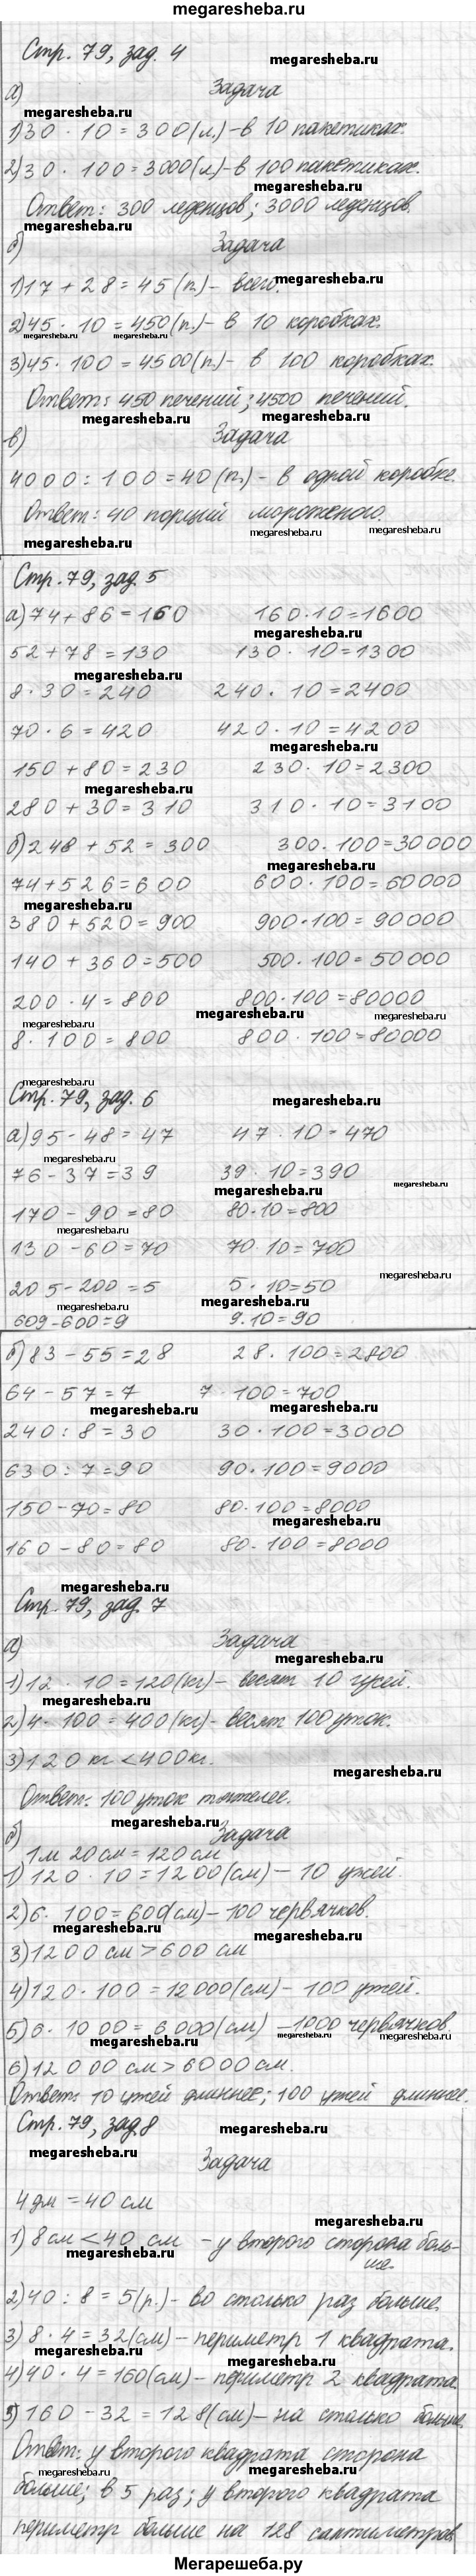 megaresheba.ru
Стр. 79, зад. 4
megaresheba.ru
а) Задача
megaresheba.ru
1) 30 · 10 = 300 (л.) - в 10 пакетиках.
2) 30 · 100 = 3000 (л) - в 100 пакетиках.
megaresheba.ru
Ответ: 300 леденцов; 3000 леденцов.
megaresheba.ru
б) Задача
1) 17 + 28 = 45 (п.) - всего. megaresheba.ru
2) 45 · 10 = 450 (п.) - в 10 коробках.
megaresheba.ru megaresheba.ru
3) 45 · 100 = 4500 (п.) - в 100 коробках.
Ответ: 450 печений; 4500 печений.
megaresheba.ru megaresheba.ru
в) Задача
4000 : 100 = 40 (п.) - в одной коробке.
Ответ: 40 порций мороженого.
megaresheba.ru megaresheba.ru
megaresheba.ru
Стр. 79, зад. 5
а) 74 + 86 = 160 160 · 10 = 1600
megaresheba.ru
52 + 78 = 130 130 · 10 = 1300
megaresheba.ru
8 · 30 = 240 240 · 10 = 2400
70 · 6 = 420 420 · 10 = 4200
megaresheba.ru
150 + 80 = 230 230 · 10 = 2300
megaresheba.ru
280 + 30 = 310 310 · 10 = 3100
б) 248 + 52 = 300 300 · 100 = 30000
megaresheba.ru
74 + 526 = 600 600 · 100 = 60000
megaresheba.ru
380 + 520 = 900 900 · 100 = 90000
140 + 360 = 500 500 · 100 = 50000
200 · 4 = 800 800 · 100 = 80000
megaresheba.ru megaresheba.ru
8 · 100 = 800 800 · 100 = 80000
megaresheba.ru
Стр. 79, зад. 6 megaresheba.ru
а) 95 - 48 = 47 47 · 10 = 470
megaresheba.ru
76 - 37 = 39 39 · 10 = 390
megaresheba.ru megaresheba.ru
170 - 90 = 80 80 · 10 = 800
megaresheba.ru
130 - 60 = 70 70 · 10 = 700
megaresheba.ru
205 - 200 = 5 5 · 10 = 50
megaresheba.ru megaresheba.ru
609 - 600 = 9 9 · 10 = 90
б) 83 - 55 = 28 28 · 100 = 2800
64 - 57 = 7 7 · 100 = 700
megaresheba.ru megaresheba.ru
240 : 8 = 30 30 · 100 = 3000
630 : 7 = 90 90 · 100 = 9000
150 - 70 = 80 80 · 100 = 8000
megaresheba.ru
160 - 80 = 80 80 · 100 = 8000
megaresheba.ru
Стр. 79, зад. 7
а) Задача
megaresheba.ru
1) 12 · 10 = 120 (кг) - весят 10 гусей.
megaresheba.ru
2) 4 · 100 = 400 (кг) - весят 100 уток.
3) 120 кг < 400 кг.
megaresheba.ru
Ответ: 100 уток тяжелее.
megaresheba.ru
б) Задача
1 м 20 см = 120 см
1) 120 · 10 = 1200 (см) - 10 ужей.
2) 6 · 100 = 600 (см) - 100 червячков.
megaresheba.ru megaresheba.ru
3) 1200 см > 600 см
4) 120 · 100 = 12000 (см) - 100 ужей.
5) 6 · 1000 = 6000 (см) - 1000 червячков
megaresheba.ru megaresheba.ru megaresheba.ru
6) 12000 см > 6000 см.
Ответ: 10 ужей длиннее; 100 ужей длиннее.
Стр. 79, зад. 8 megaresheba.ru
megaresheba.ru
Задача
4 дм = 40 см
megaresheba.ru
1) 8 см < 40 см - у второго сторона боль-
megaresheba.ru ше.
2) 40 : 8 = 5 (р.) - во столько раз больше.
3) 8 · 4 = 32 (см) - периметр 1 квадрата.
megaresheba.ru megaresheba.ru
4) 40 · 4 = 160 (см) - периметр 2 квадрата.
5) 160 - 32 = 128 (см) - на столько больше.
Ответ: у второго квадрата сторона
megaresheba.ru megaresheba.ru
больше; в 5 раз; у второго квадрата
периметр больше на 128 сантиметров
Мегарешеба.ру